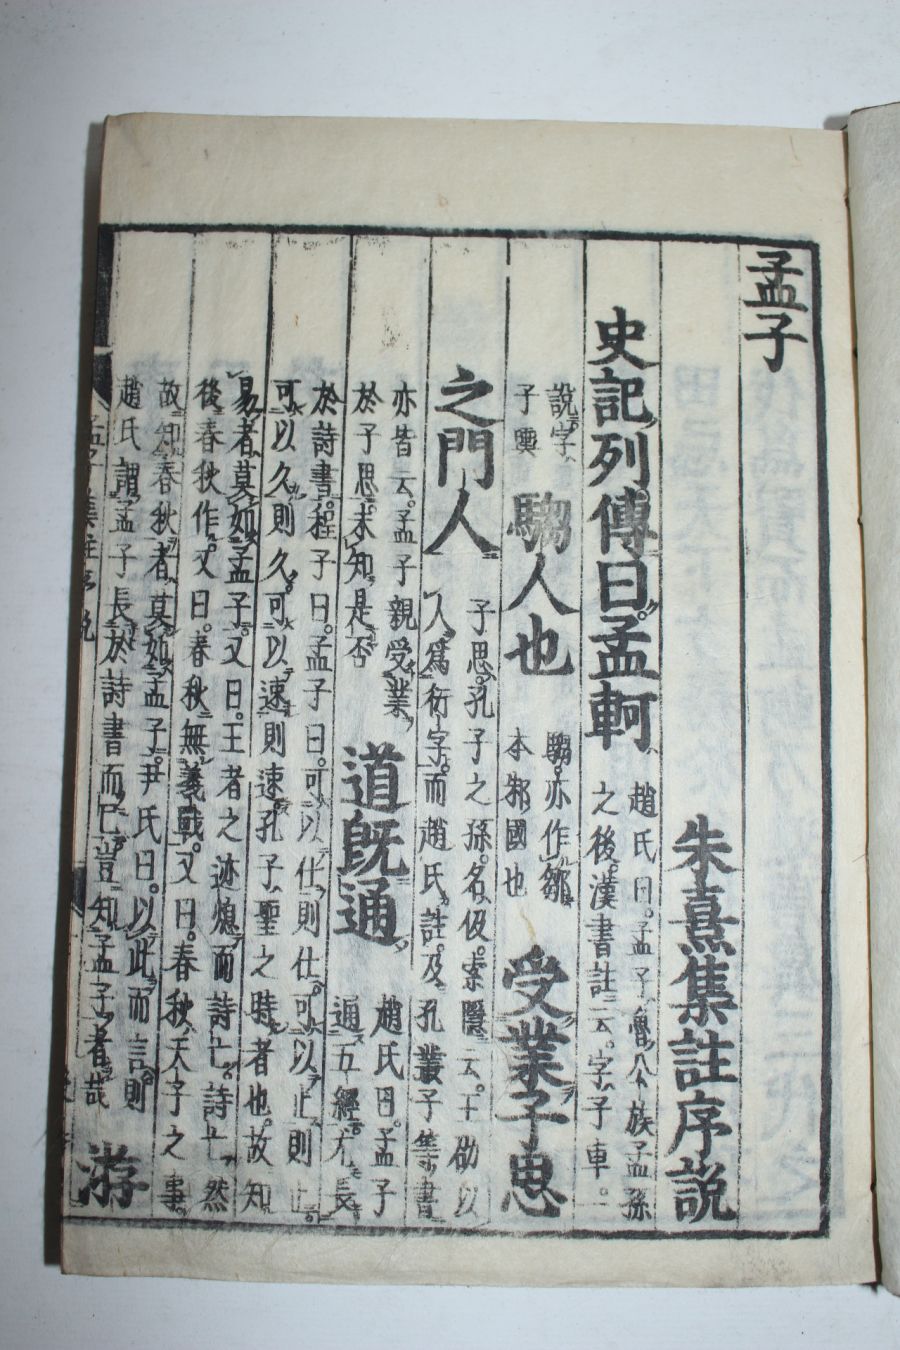 孟子
朱熹集註序說
史記列傳曰孟軻
趙氏曰孟子魯公族孟孫
之後漢書註云字子車一
說字
子輿
騶人也
騶亦作鄒
本邾國也
受業子思
之門人
子思孔子之孫名伋索隱云王劭以
人為衍字而趙氏註及孔叢子等書
亦皆云孟子親受業
於子思未知是否
道既通
趙氏曰孟子
通五經尤長
於詩書程子曰孟子曰可以仕則仕可以止則止
可以久則久可以速則速孔子聖之時者也故知
易者莫如孟子又曰王者之迹熄而詩亡詩亡然
後春秋作又曰春秋無義戰又曰春秋天子之事
故知春秋者莫如孟子尹氏曰以此而言則
趙氏謂孟子長於詩書而已豈知孟子者哉
游